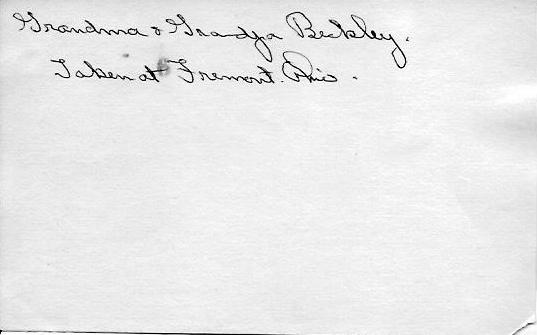 Grandma & Grandpa Beckley.
Taken at Fremont. Ohio.